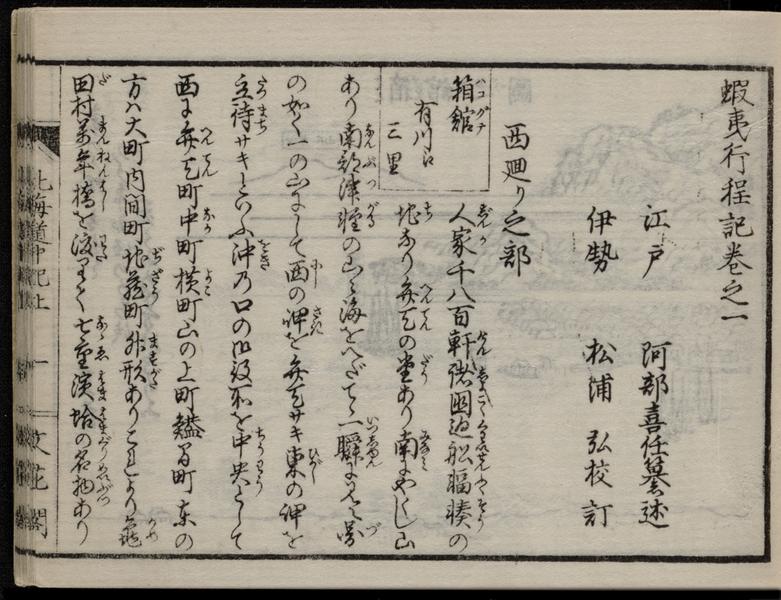 蝦夷行程記巻之一
江戸 阿部喜任纂述
伊勢 松浦 弘校訂
西廻り之部
箱館 ハコダテ
有川江
三里
人家千八百軒諸国廻船輻湊の
地なり弁天の堂あり南にやくし山
あり南部津軽の山々海をへだてゝ一瞬に見ゆ図
の如く一の山にして西の岬を弁天サキ東の岬を
立待サキといふ沖乃口の御役所を中央として
西は弁天町中町横町山の上町鰪澗町東の
方ハ大町内澗町地蔵町升形ありこれより亀
田村万年橋を渡りて七重濱蛤の名物あり
北海道中記上 一 文花閣